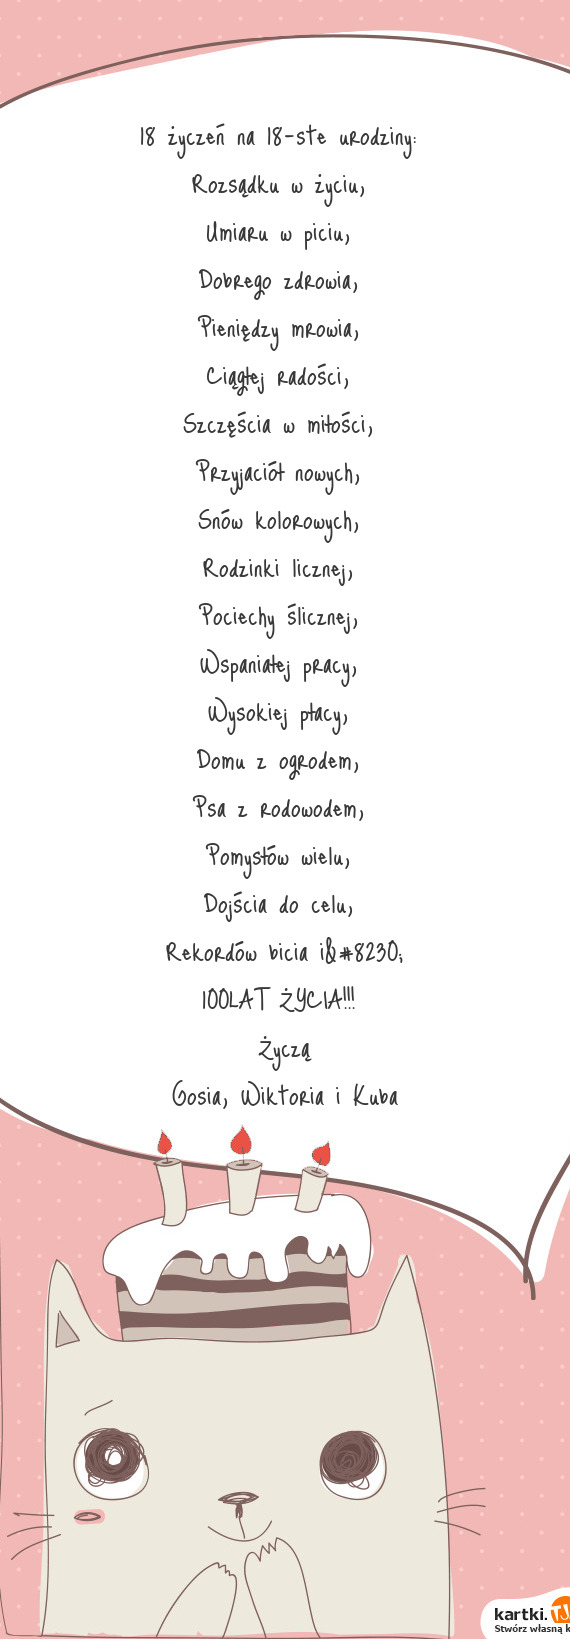 18 życzeń na 18-ste urodziny:
Rozsądku w życiu,
Umiaru w piciu,
Dobrego zdrowia,
Pieniędzy mrowia,
Ciągłej radości,
Szczęścia w miłości,
Przyjaciół nowych,
Snów kolorowych,
Rodzinki licznej,
Pociechy ślicznej,
Wspaniałej pracy,
Wysokiej płacy,
Domu z ogrodem,
Psa z rodowodem,
Pomysłów wielu,
Dojścia do celu,
Rekordów bicia i&#8230;
100LAT ŻYCIA!!!
Życzą
Gosia, Wiktoria i Kuba
kartki.TJ
Stwórz własną k